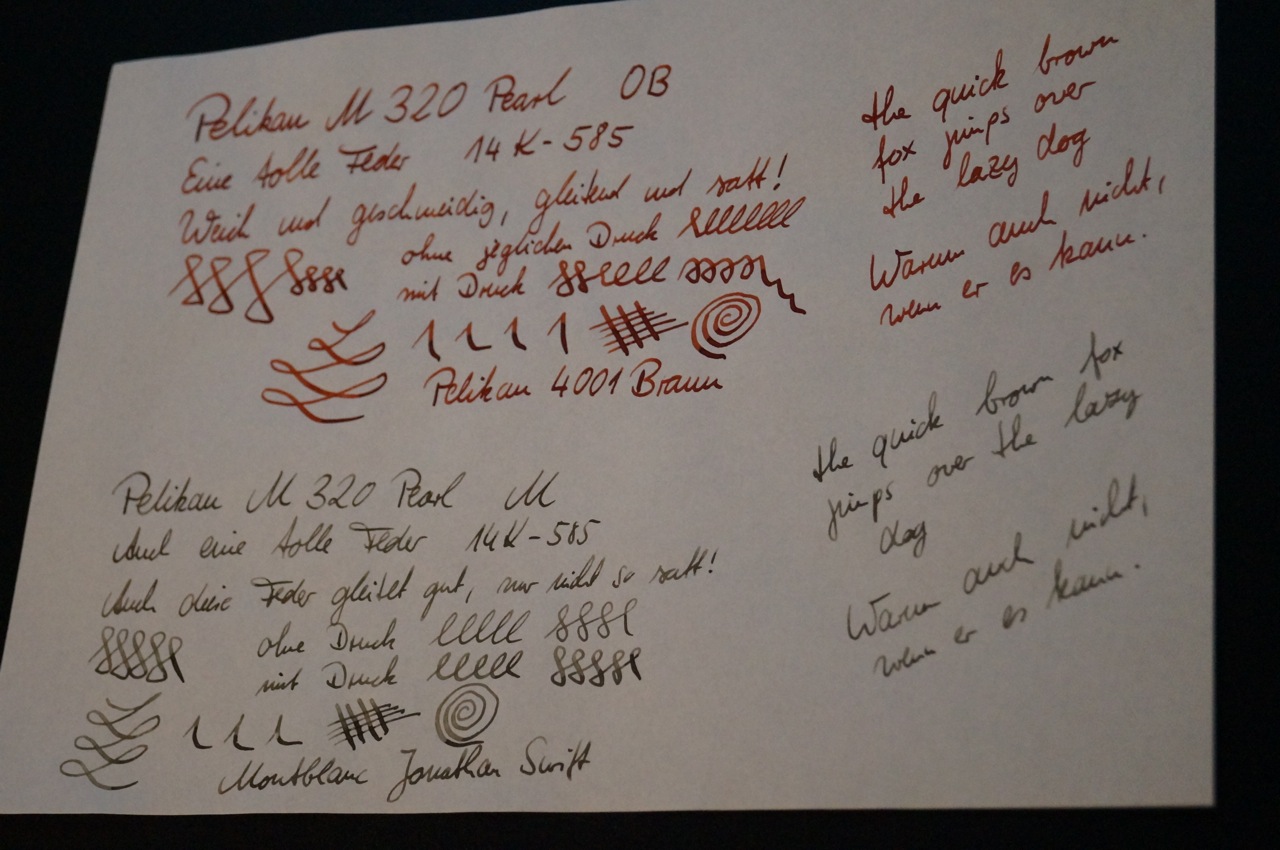 Pelikan M 320 Pearl OB
Eine tolle Feder 14 K - 585
Weich und geschmeidig, gleitend und satt!
ohne jeglichen Druck
mit Druck
Pelikan 4001 Braun
the quick brown
fox jumps over
the lazy dog
Warum auch nicht,
wenn er es kann.
Pelikan M 320 Pearl M
Auch eine tolle Feder 14K - 585
Auch diese Feder gleitet gut, nur nicht so satt!
ohne Druck
mit Druck
Montblanc Jonathan Swift
the quick brown fox
jumps over the lazy
dog
Warum auch nicht,
wenn er es kann.